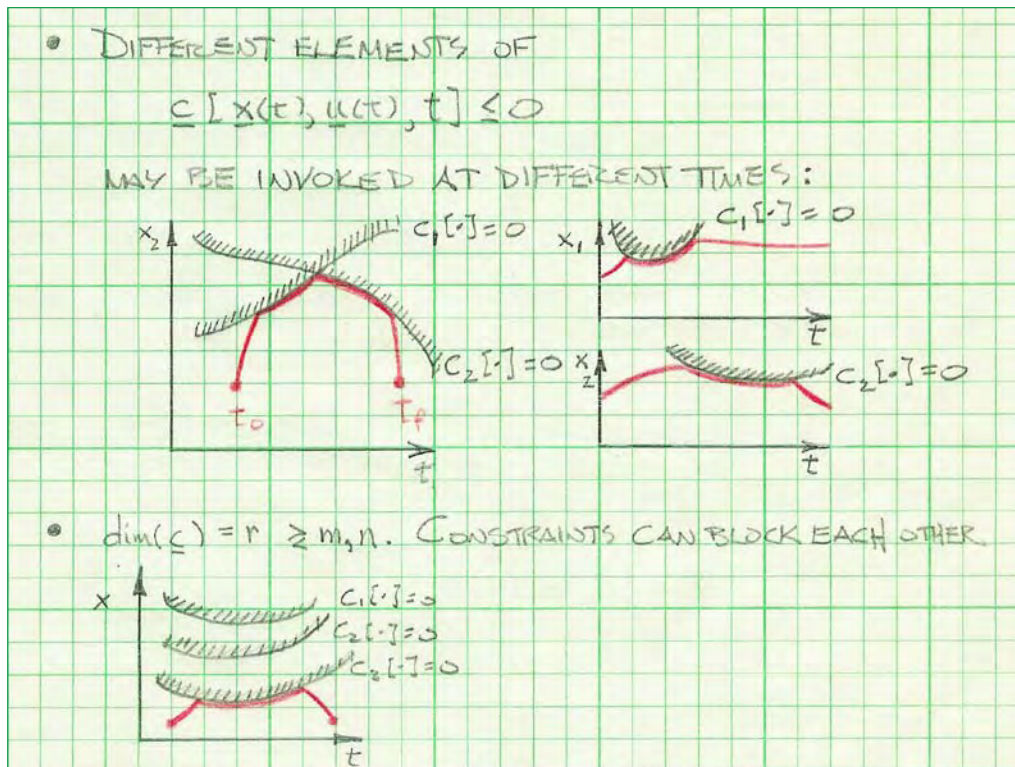 • DIFFERENT ELEMENTS OF
c[x(t), u(t), t] ≤ 0
MAY BE INVOKED AT DIFFERENT TIMES:
x₂
c₁[·]=0
c₂[·]=0
t₀
t_f
t
x₁
c₁[·]=0
t
x₂
c₂[·]=0
t
• dim(c) = r ≷ m, n. CONSTRAINTS CAN BLOCK EACH OTHER.
x
c₁[·]=0
c₂[·]=0
c₃[·]=0
t